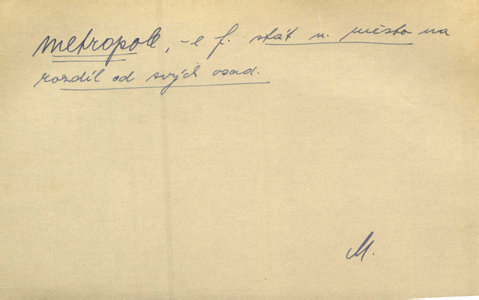 metropole, -e f. stát n. město na
rozdíl od svých osad.
M.